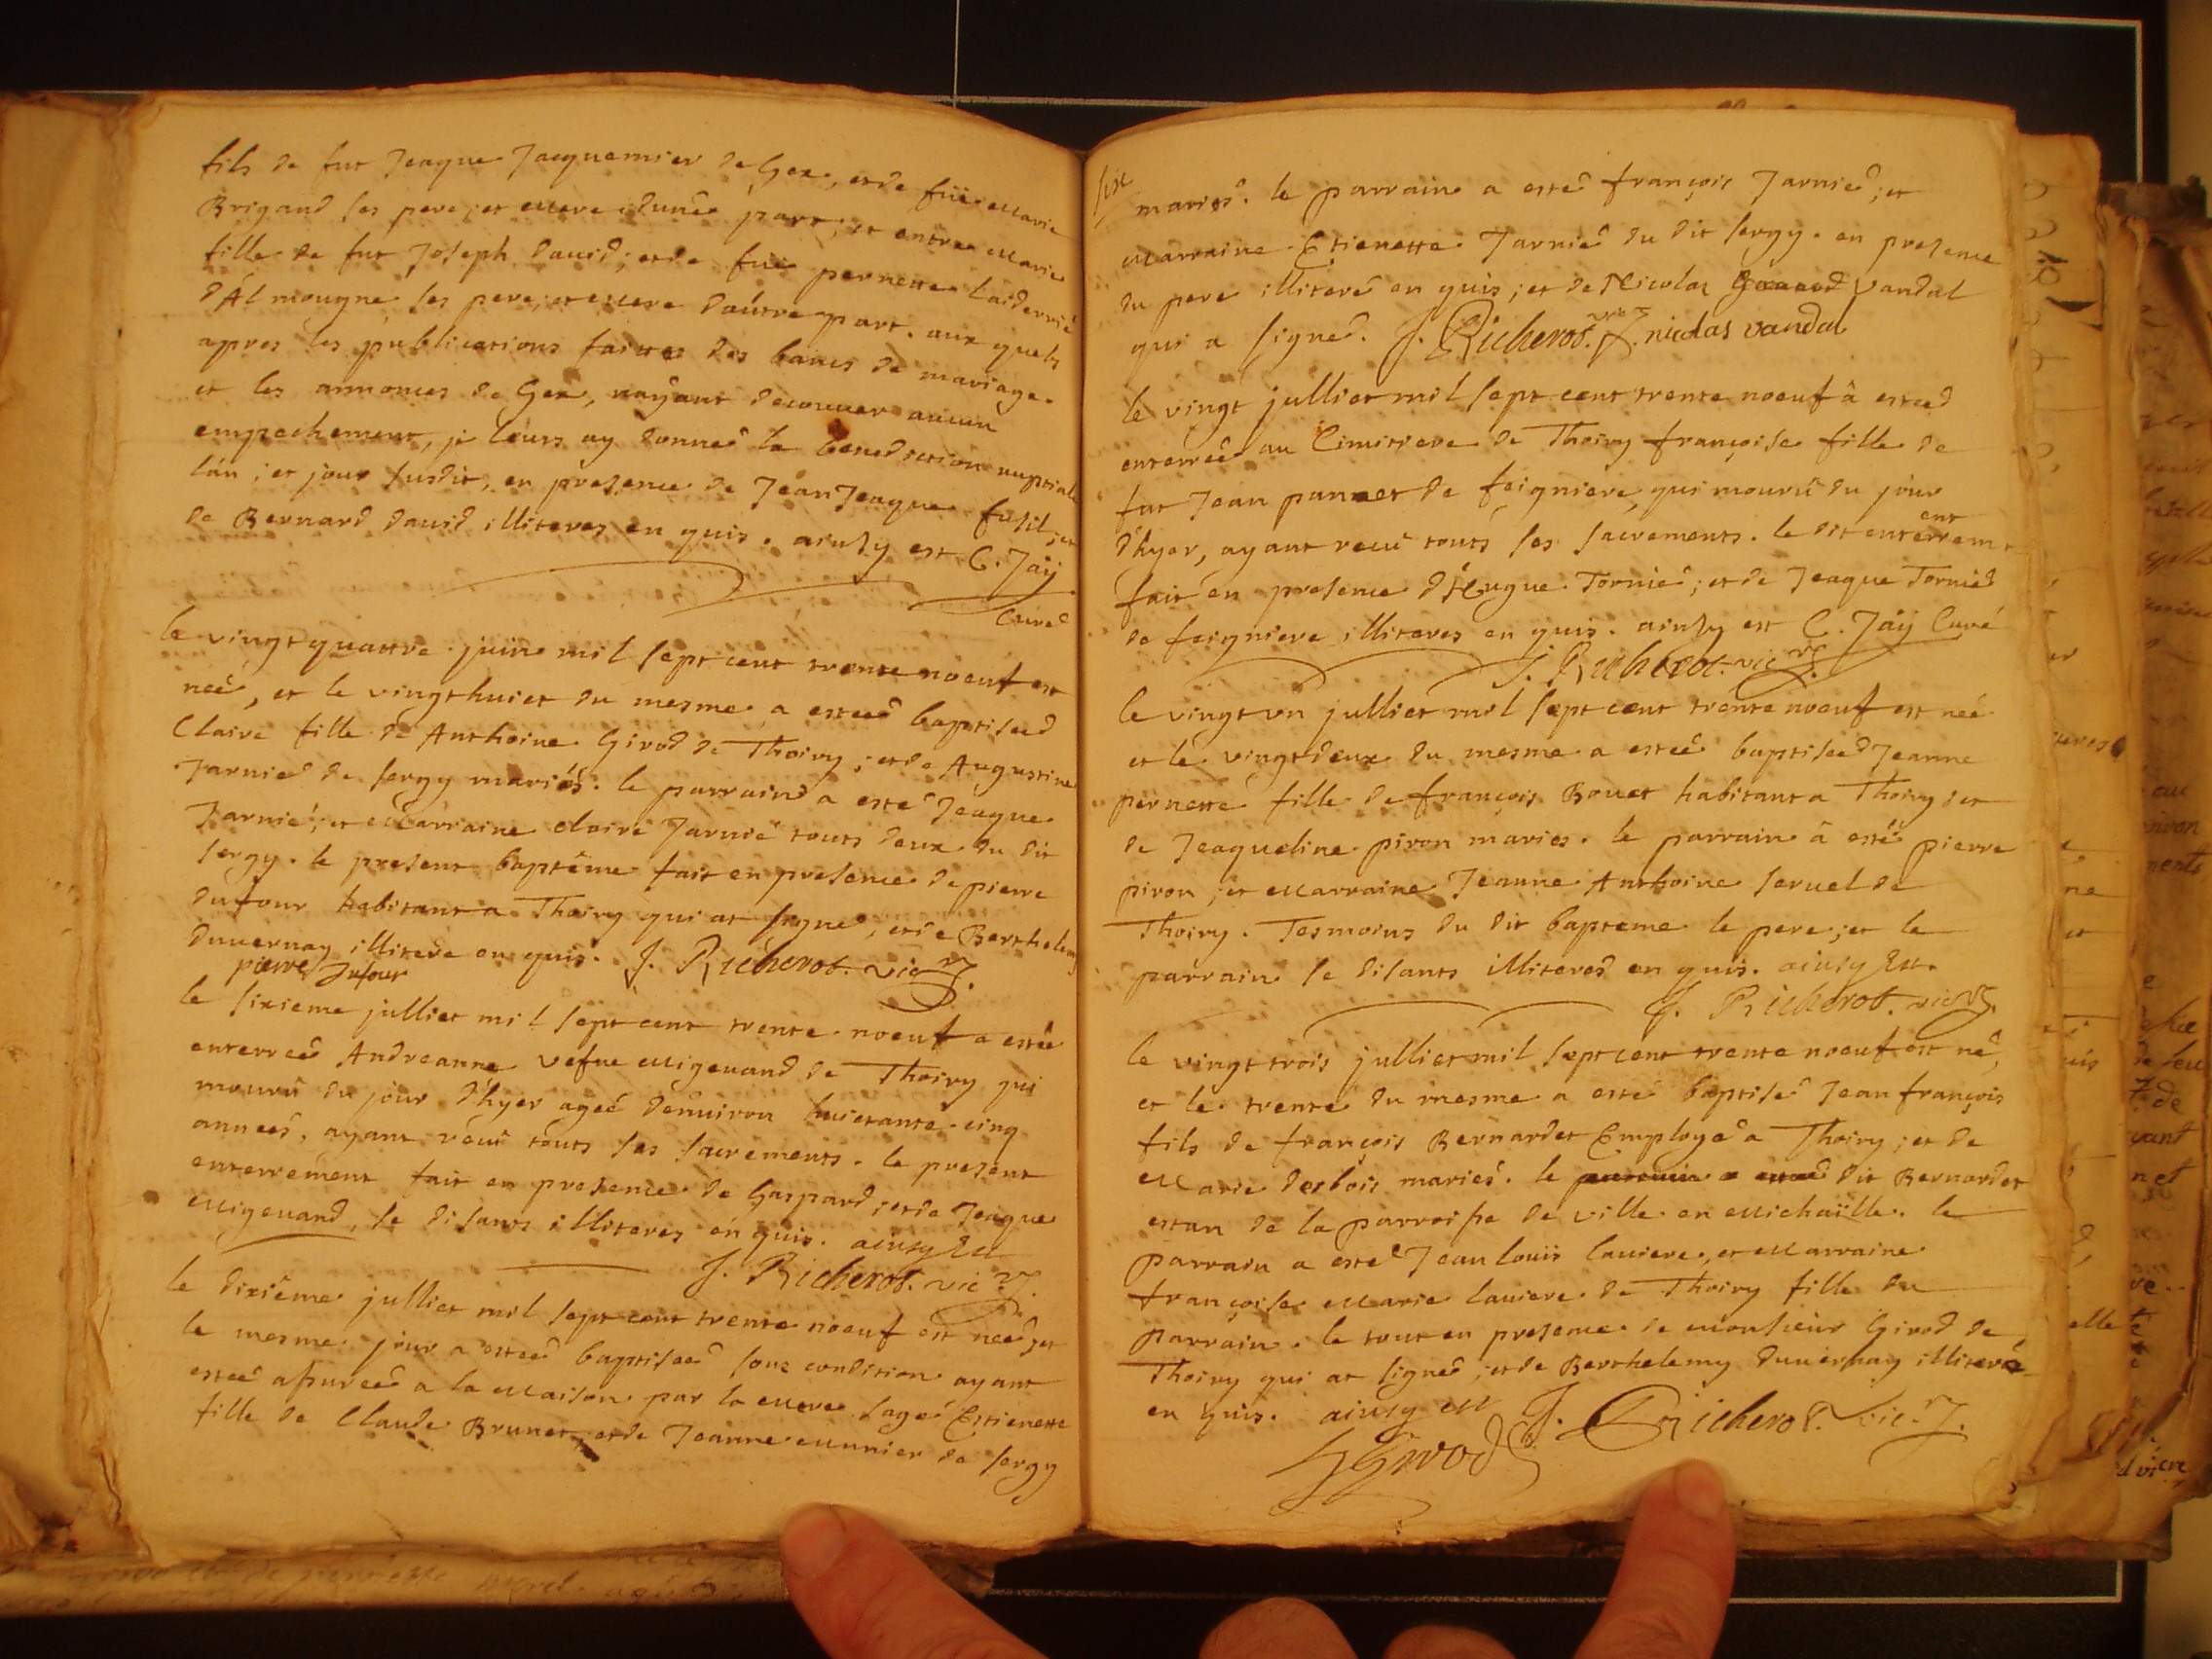 fils de fut Jeaque Jacquemier de Gex, et de füe Marie
Brigand ses pere, et mere d'une part, et entre Marie
fille de fut Joseph David, et de füe pernette Laiderrie
d'Almougne ses pere, et mere d'aútre part. aux quels
apres les publications faittes des bancs de mariage.
et les annonces de Gex, nayant decouver aucun
empechement, je leurs ay donneé la benediction nuptiale
lán, et jour susdit, en presence de Jean Jeaque fusil, et
de Bernard David illiteres en quis. ainsy est C. Jaÿ
Curé
le vingt quattre juin mil sept cent trente noeuf est
neé, et le vingt huiet du mesme a esteé baptiseé
Claire fille de Anthoine Girod de Thoiry, et de Augustine
Jarnié de sergy mariés. le parrain a esté Jeaque
Jarnié, et Marraine claire Jarnié touts deux du dit
sergy. le present baptême fait en presence de pierre
dufour habitant a Thoiry qui at signé, et de Berthelemy
Duvernay illitere en quis. J. Richerot. vic
pierre Dufour
le sixieme julliet mil sept cent trente noeuf a esteé
enterreé Andreanne vefue Migevand de Thoiry qui
mourú du jour d'hyer ageé d'environ huictante cinq
anneés, ayant receü touts ses sacrements. le present
enterrement fait en presence de Gaspard, et de Jeaque
Migevand, se disants illiteres en quis. ainsy Est
J. Richerot. vic
le dixième julliet mil sept cent trente noeuf est neé, et
le mesme jour a esteé baptiseé sous condition ayant
esteé assureé a la Maison par la mere sage Estienette
fille de Claude Brunet, et de Jeanne Munier de sergy
six
mariés. le parrain a esté françois Jarnié, et
Marraine Estienette Jarnié du dit sergy. en presence
du pere illiteré en quis; et de Nicolas Vandal
qui a signé. J. Richerot. vic nicolas vandal
le vingt julliet mil sept cent trente noeuf â esteé
enterreé au Cimitiere de Thoiry françoise fille de
fut Jean pannet de feigniere, qui mourú du jour
d'hyer, ayant receü touts ses sacrements. le dit enterrement
fait en presence d'Hugue Tornié; et de Jeaque Tornié
de feigniere illiteres en quis. ainsy est C. Jaÿ Curé
J. Richerot. vic
le vingt un julliet mil sept cent trente noeuf est neé
et le vingt deux du mesme a esteé baptiseé Jeanne
pernette fille de françois Bouet habitant a Thoiry; et
de Jeaqueline piron mariés. le parrain â esté pierre
piron, et Marraine Jeanne Anthoine seruel de
Thoiry. Tesmoins du dit bapteme le pere, et le
parrain se disants illiteres en quis. ainsy Est.
J. Richerot. vic
le vingt trois julliet mil sept cent trente noeuf est né,
et le trente du mesme a esté baptisé Jean françois
fils de françois Bernardet Employé a Thoiry; et de
Marie Desbois mariés. le parrain a esteé dit Bernardet
estan de la parroisse de ville en Michaïlle. le
parrain a esté Jean louis laviere, et Marraine
françoise Marie laviere de Thoiry fille du
parrain. le tout en presence de monsieur Girod de
Thoiry qui at signé; et de Berthelemy Duvernay illiteré
en quis. ainsy est J. Richerot. vic.
Girod